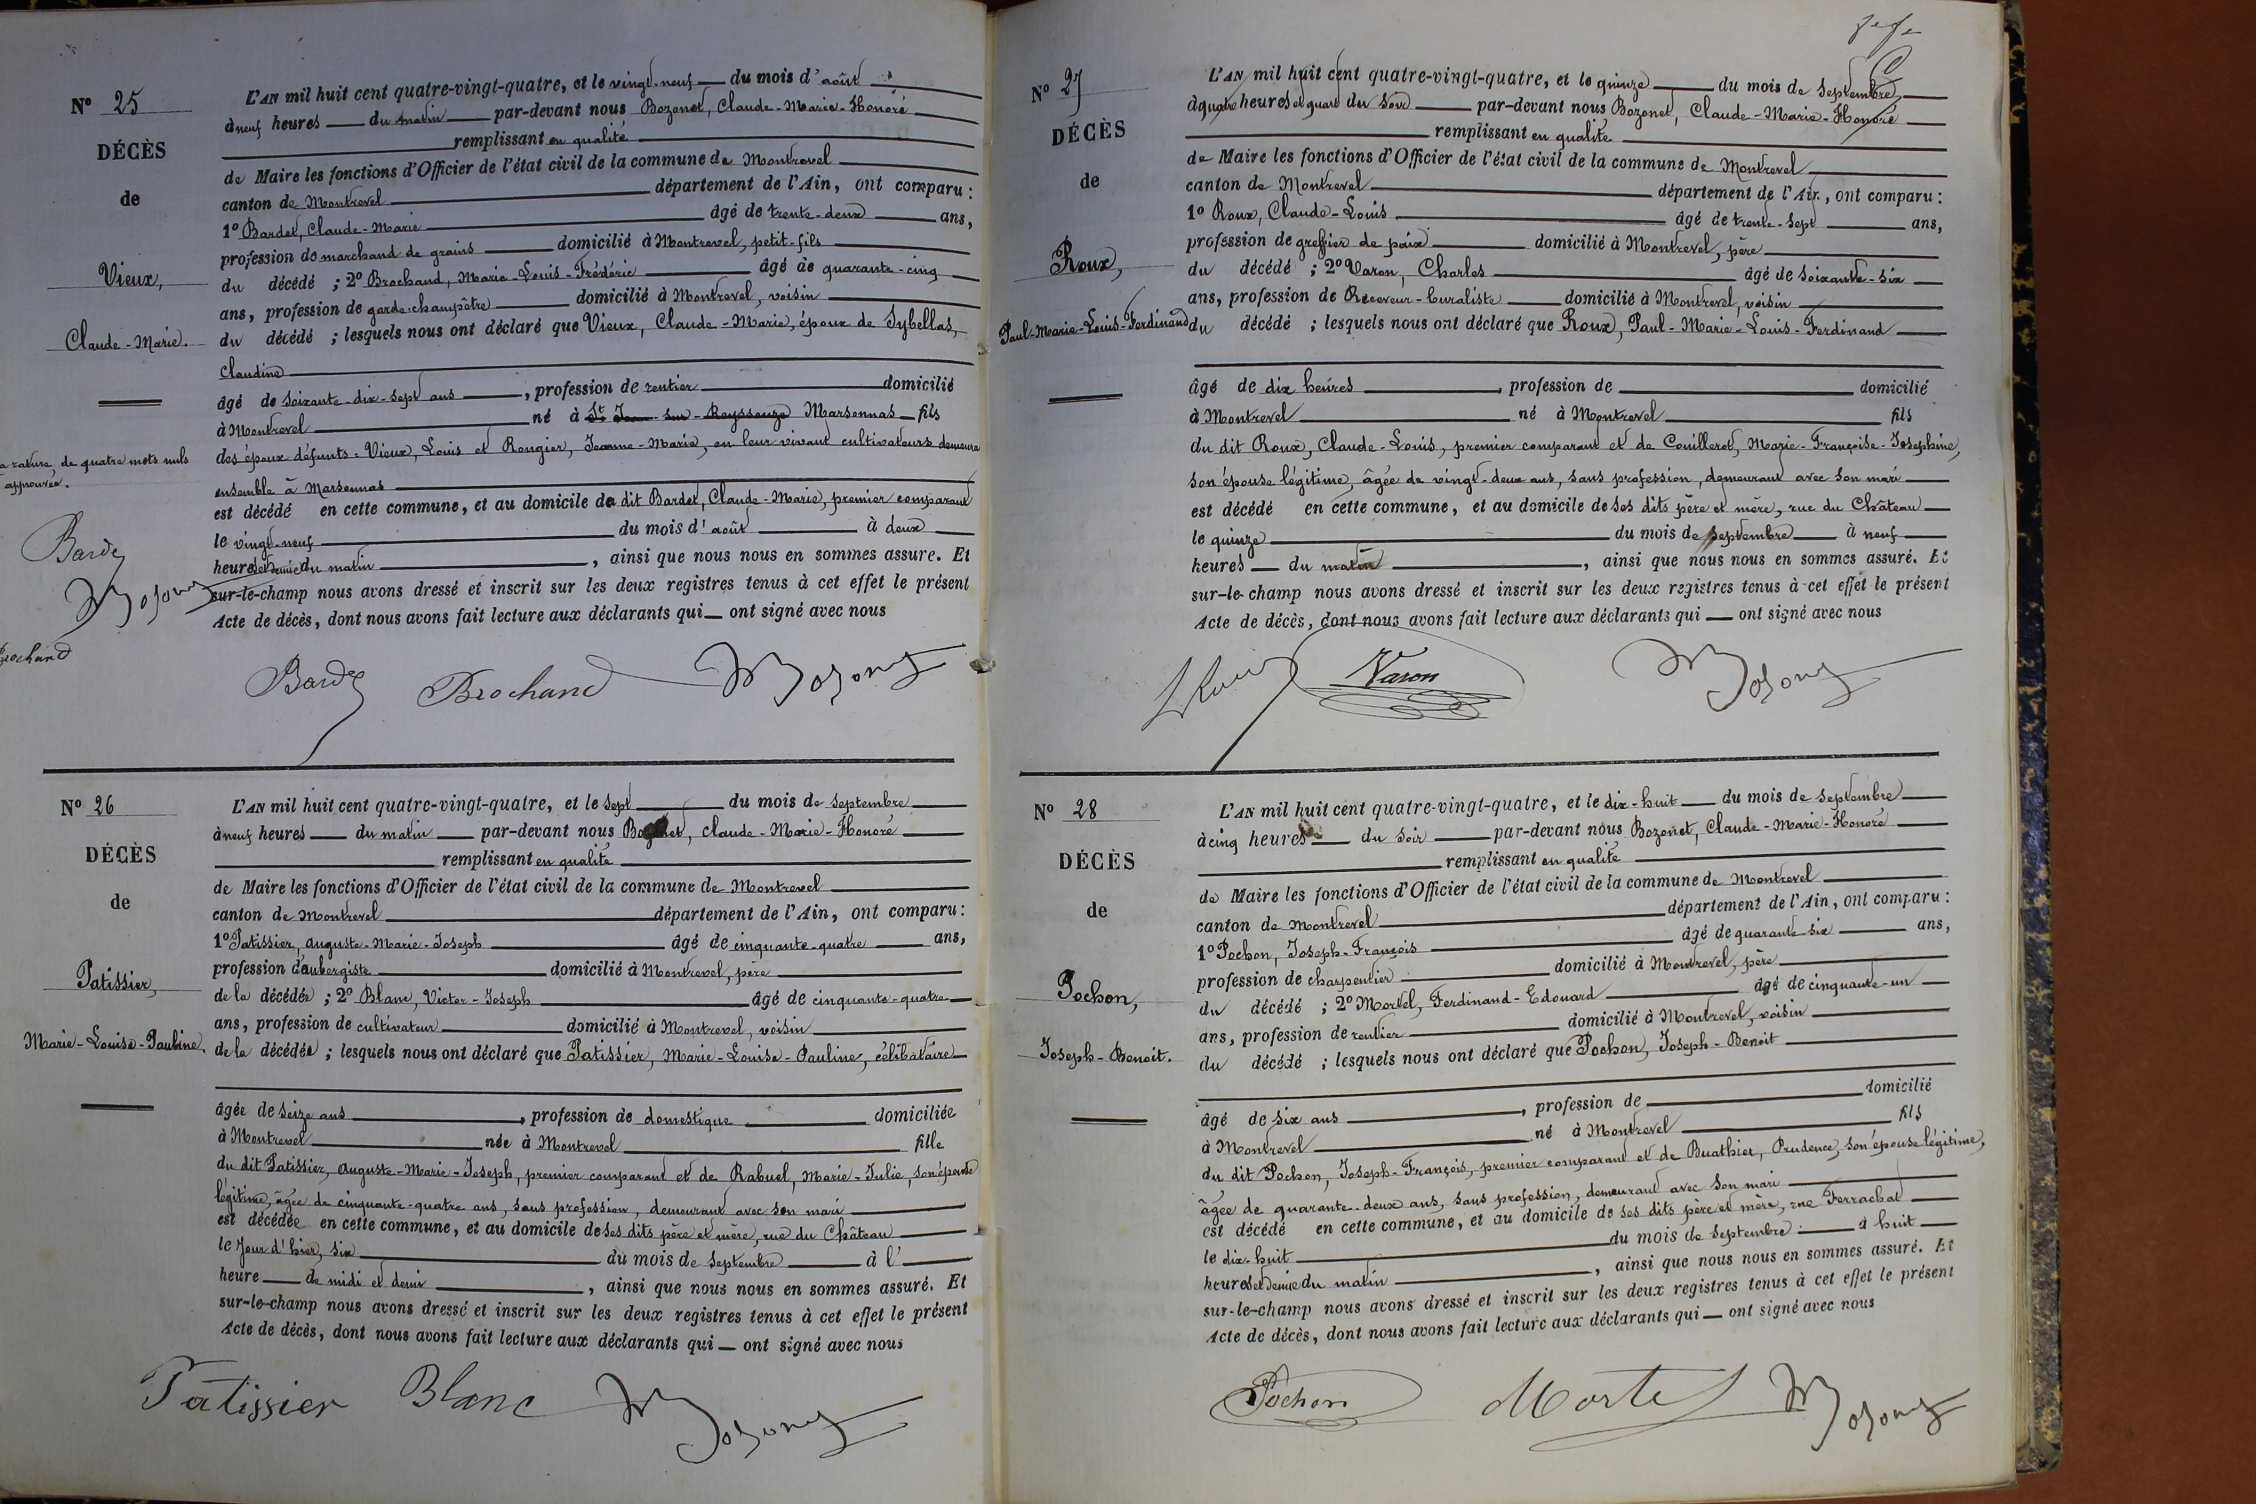 N° 25
DÉCÈS
de
Vieux,
Claude-Marie.
rature de quatre mots nuls
approuvée.
Bardet
Brochand
L'AN mil huit cent quatre-vingt-quatre, et le vingt-neuf du mois d'août
à neuf heures du matin par-devant nous Bozonet, Claude-Marie-Honoré
remplissant en qualité
de Maire les fonctions d'Officier de l'état civil de la commune de Montrevel
canton de Montrevel département de l'Ain, ont comparu :
1° Bardet, Claude-Marie âgé de trente-deux ans,
profession de marchand de grains domicilié à Montrevel, petit-fils
du décédé ; 2° Brochand, Marie-Louis-Frédéric âgé de quarante-cinq
ans, profession de garde-champêtre domicilié à Montrevel, voisin
du décédé ; lesquels nous ont déclaré que Vieux, Claude-Marie, époux de Sybellas,
Claudine
âgé de soixante-dix-sept ans, profession de rentier domicilié
à Montrevel né à St Jean-sur-Reyssouze Marsonnas fils
des époux défunts : Vieux, Louis et Rongier, Jeanne-Marie, en leur vivant cultivateurs demeurant
ensemble à Marsonnas
est décédé en cette commune, et au domicile de dit Bardet, Claude-Marie, premier comparant
le vingt-neuf du mois d'août à deux
heures et demie du matin, ainsi que nous nous en sommes assuré. Et
sur-le-champ nous avons dressé et inscrit sur les deux registres tenus à cet effet le présent
Acte de décès, dont nous avons fait lecture aux déclarants qui ont signé avec nous
Bardet Brochand Bozonet
N° 26
DÉCÈS
de
Patissier,
Marie-Louise-Pauline.
L'AN mil huit cent quatre-vingt-quatre, et le sept du mois de septembre
à neuf heures du matin par-devant nous Bozonet, Claude-Marie-Honoré
remplissant en qualité
de Maire les fonctions d'Officier de l'état civil de la commune de Montrevel
canton de Montrevel département de l'Ain, ont comparu :
1° Patissier, Auguste-Marie-Joseph âgé de cinquante-quatre ans,
profession d'aubergiste domicilié à Montrevel, père
de la décédée ; 2° Blanc, Victor-Joseph âgé de cinquante-quatre
ans, profession de cultivateur domicilié à Montrevel, voisin
de la décédée ; lesquels nous ont déclaré que Patissier, Marie-Louise-Pauline, célibataire
âgée de seize ans, profession de domestique domiciliée
à Montrevel née à Montrevel fille
du dit Patissier, Auguste-Marie-Joseph, premier comparant et de Rabuel, Marie-Julie, son épouse
légitime, âgée de cinquante-quatre ans, sans profession, demeurant avec son mari
est décédée en cette commune, et au domicile de ses dits père et mère, rue du Château
le jour d'hier, six du mois de septembre à l'
heure de midi et demi, ainsi que nous nous en sommes assuré. Et
sur-le-champ nous avons dressé et inscrit sur les deux registres tenus à cet effet le présent
Acte de décès, dont nous avons fait lecture aux déclarants qui ont signé avec nous
Patissier Blanc Bozonet
N° 27
DÉCÈS
de
Roux,
Paul-Marie-Louis-Ferdinand
L'AN mil huit cent quatre-vingt-quatre, et le quinze du mois de septembre,
à quatre heures et quart du soir par-devant nous Bozonet, Claude-Marie-Honoré
remplissant en qualité
de Maire les fonctions d'Officier de l'état civil de la commune de Montrevel
canton de Montrevel département de l'Ain, ont comparu :
1° Roux, Claude-Louis âgé de trente-sept ans,
profession de greffier de paix domicilié à Montrevel, père
du décédé ; 2° Varon, Charles âgé de soixante-six
ans, profession de Receveur-buraliste domicilié à Montrevel, voisin
du décédé ; lesquels nous ont déclaré que Roux, Paul-Marie-Louis-Ferdinand
âgé de dix heures, profession de domicilié
à Montrevel né à Montrevel fils
du dit Roux, Claude-Louis, premier comparant et de Couillerot, Marie-Françoise-Josephine,
son épouse légitime, âgée de vingt-deux ans, sans profession, demeurant avec son mari
est décédé en cette commune, et au domicile de ses dits père et mère, rue du Château
le quinze du mois de septembre à neuf
heures du matin, ainsi que nous nous en sommes assuré. Et
sur-le-champ nous avons dressé et inscrit sur les deux registres tenus à cet effet le présent
Acte de décès, dont nous avons fait lecture aux déclarants qui ont signé avec nous
LRoux Varon Bozonet
N° 28
DÉCÈS
de
Pochon,
Joseph-Benoit.
L'AN mil huit cent quatre-vingt-quatre, et le dix-huit du mois de septembre
à cinq heures du soir par-devant nous Bozonet, Claude-Marie-Honoré
remplissant en qualité
de Maire les fonctions d'Officier de l'état civil de la commune de Montrevel
canton de Montrevel département de l'Ain, ont comparu :
1° Pochon, Joseph-François âgé de quarante-six ans,
profession de charpentier domicilié à Montrevel, père
du décédé ; 2° Mortel, Ferdinand-Edouard âgé de cinquante-un
ans, profession de rentier domicilié à Montrevel, voisin
du décédé ; lesquels nous ont déclaré que Pochon, Joseph-Benoit
âgé de six ans, profession de domicilié
à Montrevel né à Montrevel fils
du dit Pochon, Joseph-François, premier comparant et de Buathier, Prudence, son épouse légitime,
âgée de quarante-deux ans, sans profession, demeurant avec son mari
est décédé en cette commune, et au domicile de ses dits père et mère, rue Ferrachat
le dix-huit du mois de septembre à huit
heures et demie du matin, ainsi que nous nous en sommes assuré. Et
sur-le-champ nous avons dressé et inscrit sur les deux registres tenus à cet effet le présent
Acte de décès, dont nous avons fait lecture aux déclarants qui ont signé avec nous
Pochon Mortel Bozonet